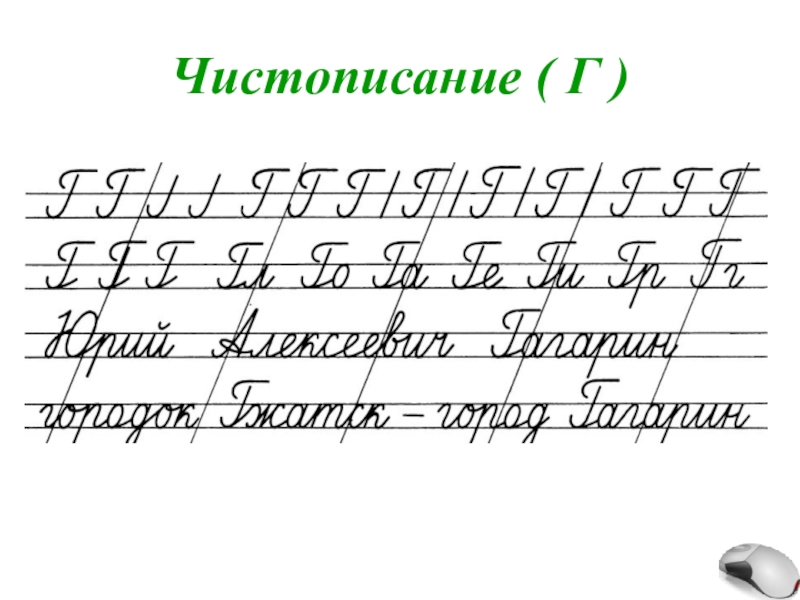 Чистописание ( Г )
Г Г / / Г Г Г / Г / Г / Г / Г Г Г
Г Г Г Гл Го Га Ге Ги Гр Гг
Юрий Алексеевич Гагарин
городок Гжатск – город Гагарин